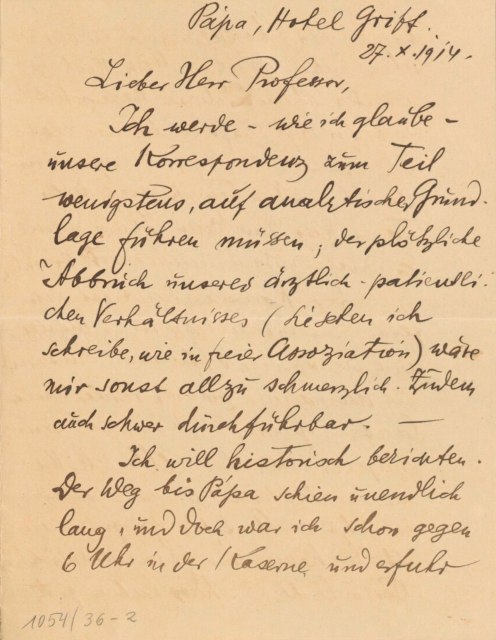 Pápa, Hotel Griff.
27. X. 1914.
Lieber Herr Professor,
Ich werde – wie ich glaube –
unsere Korrespondenz zum Teil
wenigstens, auf analytischer Grund-
lage führen müssen; der plötzliche
Abbruch unseres ärztlich-patientli-
chen Verhältnisses ( ich
schreibe, wie in freier Assoziation) wäre
mir sonst allzu schmerzlich. Zudem
auch schwer durchführbar. —
Ich will historisch berichten.
Der Weg bis Pápa schien unendlich
lang, und doch war ich schon gegen
6 Uhr in der Kaserne und erfuhr
1054/36-2